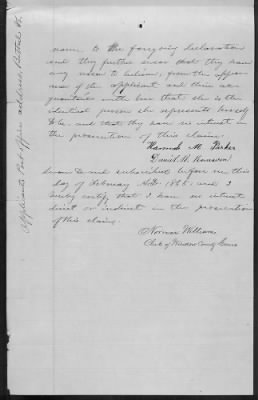 name to the foregoing declaration
and they further swear that they have
every reason to believe, from the appear-
ance of the applicant and their ac-
quaintance with her that she is the
identical person she represents herself
to be and that they have no interest in
the prosecution of this claim.
Hannah M. Parker
Daniel
Sworn to and subscribed before me this
day of February A.D. 1865 and I
hereby certify that I have no interest
direct or indirect in the prosecution
of this claim.
Norman Williams
Clerk of Windsor County Court
Applicants Post-Office address,